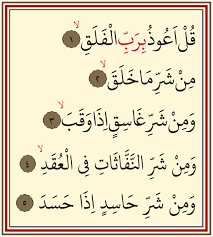 قُلْ اَعُوذُ بِرَبِّ الْفَلَقِۙ ﴿١﴾
مِنْ شَرِّ مَا خَلَقَۙ ﴿٢﴾
وَمِنْ شَرِّ غَاسِقٍ اِذَا وَقَبَۙ ﴿٣﴾
وَمِنْ شَرِّ النَّفَّاثَاتِ فِى الْعُقَدِۙ ﴿٤﴾
وَمِنْ شَرِّ حَاسِدٍ اِذَا حَسَدَ ﴿٥﴾